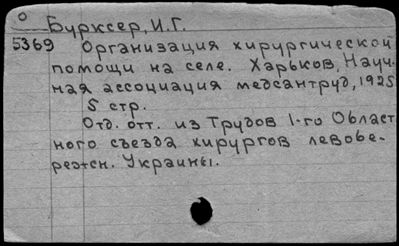 Бурксер, И.Г.
5369 Организация хирургической
помощи на селе. Харьков Науч-
ная ассоциация медсантруд, 1925
5 стр.
Отд. отт. из Трудов 1-го Област
ного съезда хирургов левобе-
режн. Украины.